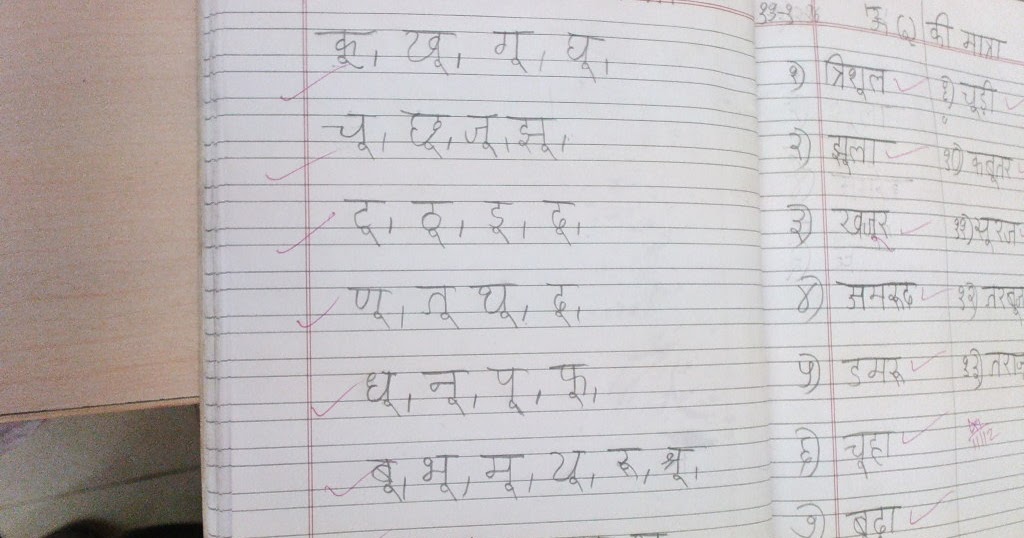 कू, खू, गू, घू,
चू, छू, जू, झू,
टू, ठू, डू, ढू,
णू, तू थू, दू,
धू, नू, पू, फू,
बू, भू, मू, यू, रू, श्रू,
ऊ (ू) की मात्रा
१) त्रिशूल
२) झूला
३) खजूर
४) अमरूद
५) डमरू
६) चूहा
७) बूढ़ा
९) चूड़ी
१०) कबूतर
११) सूरज